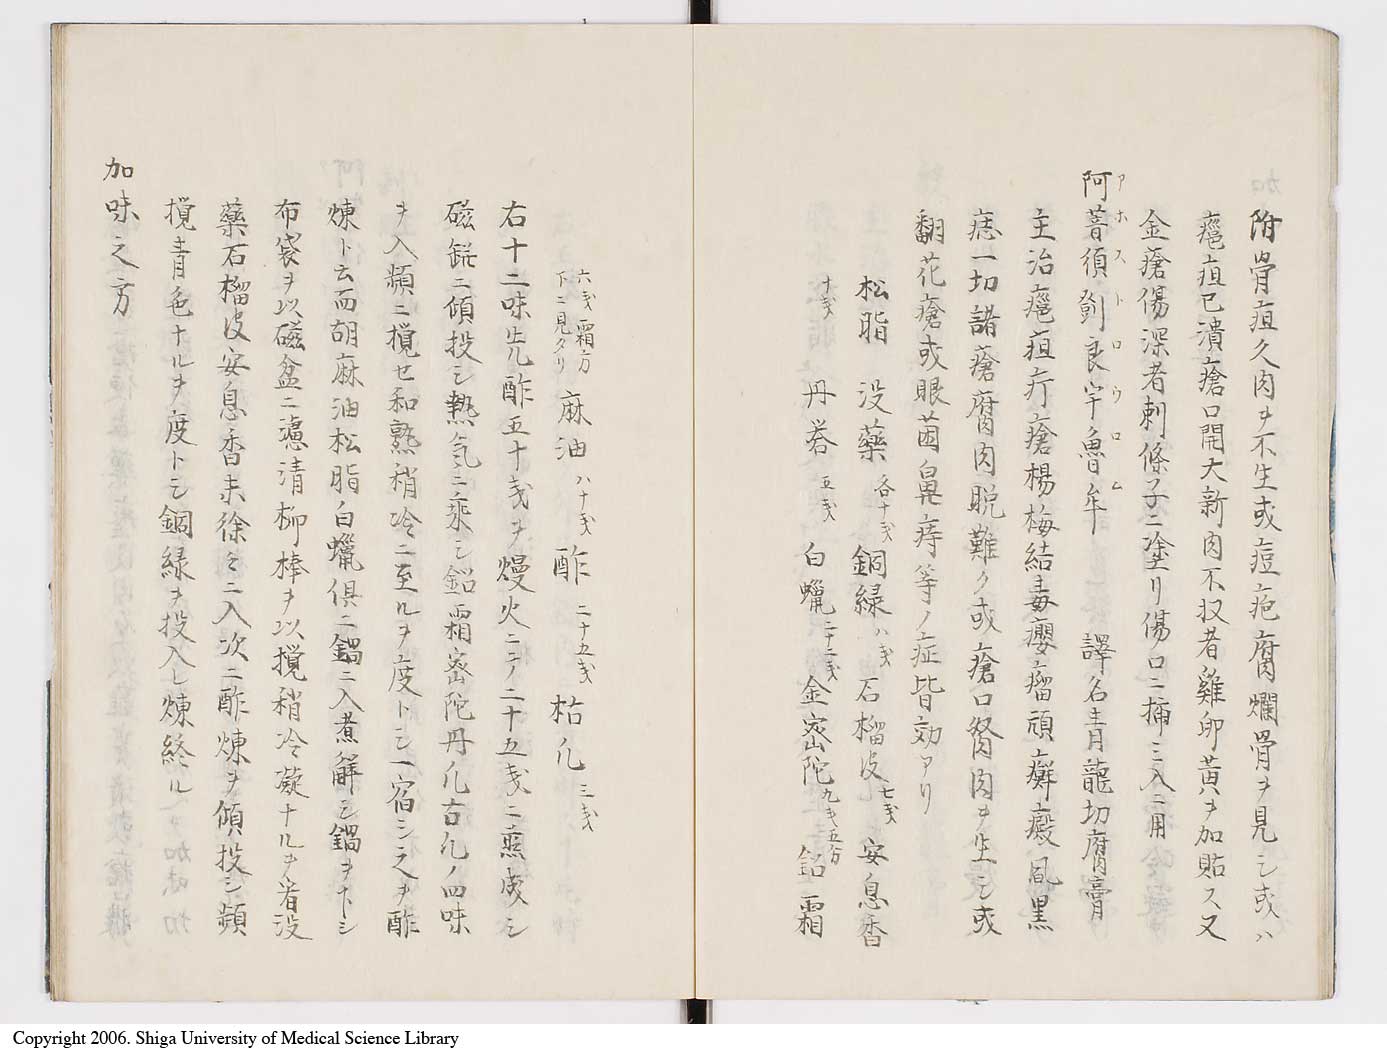 附骨疽久肉ヲ不生或痘疤腐爛骨ヲ見シ或ハ
癰疽已潰瘡口開大新肉不収者雞卵黄ヲ加貼ス又
金瘡傷深者刺條子ニ塗リ傷口ニ挿ミ入ニ用
阿菩須劉良宇魯牟 譯名青龍切腐膏
アホストロウロム
主治癰疽疔瘡楊梅結毒癭瘤頑癬癜風黒
痣一切諸瘡腐肉脱難ク或瘡口努肉ヲ生シ或
翻花瘡或眼茵鼻痔等ノ症皆効アリ
松脂 没藥各十戔 銅緑八戔 石榴皮七戔 安息香
十戔 丹礬五戔 白蠟二十二戔 金宻陀九戔五分 鉛霜
六戔霜方下ニ見タリ 麻油八十戔 酢二十五戔 枯凢三戔
右十二味先酢五十戔ヲ熳火ニテ二十五戔ニ煎成シ
磁鋞ニ傾投シ熱気ニ乘シ鉛霜宻陀丹凢右凢ノ四味
ヲ入頻ニ攪セ和熟稍冷ニ至ルヲ度トシ一宿シ之ヲ酢
煉ト云而胡麻油松脂白蠟倶ニ鍋ニ入煮解シ鍋ヲ下シ
布袋ヲ以磁盆ニ濾清柳棒ヲ以攪稍冷凝ナルヲ者没
藥石榴皮安息香末徐々ニ入次ニ酢煉ヲ傾投シ頻
攪青色ナルヲ度トシ銅緑ヲ投入レ煉終ル
加味之方
Copyright 2006. Shiga University of Medical Science Library